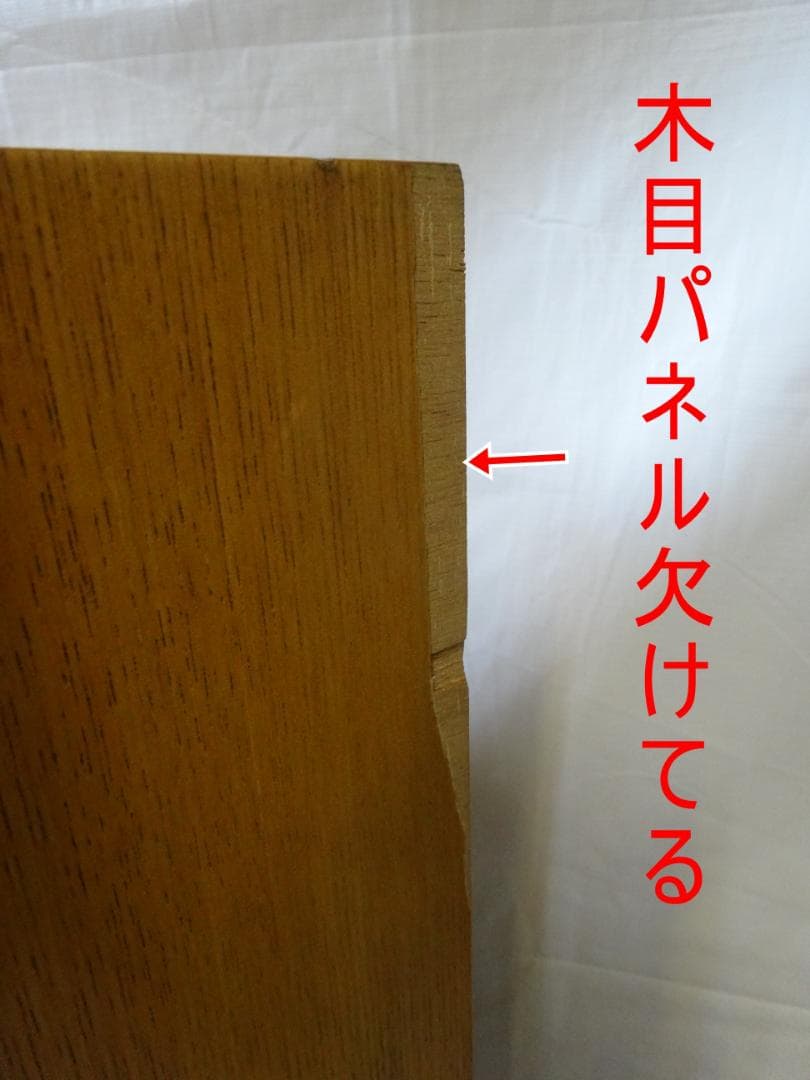 木目パネル欠けてる